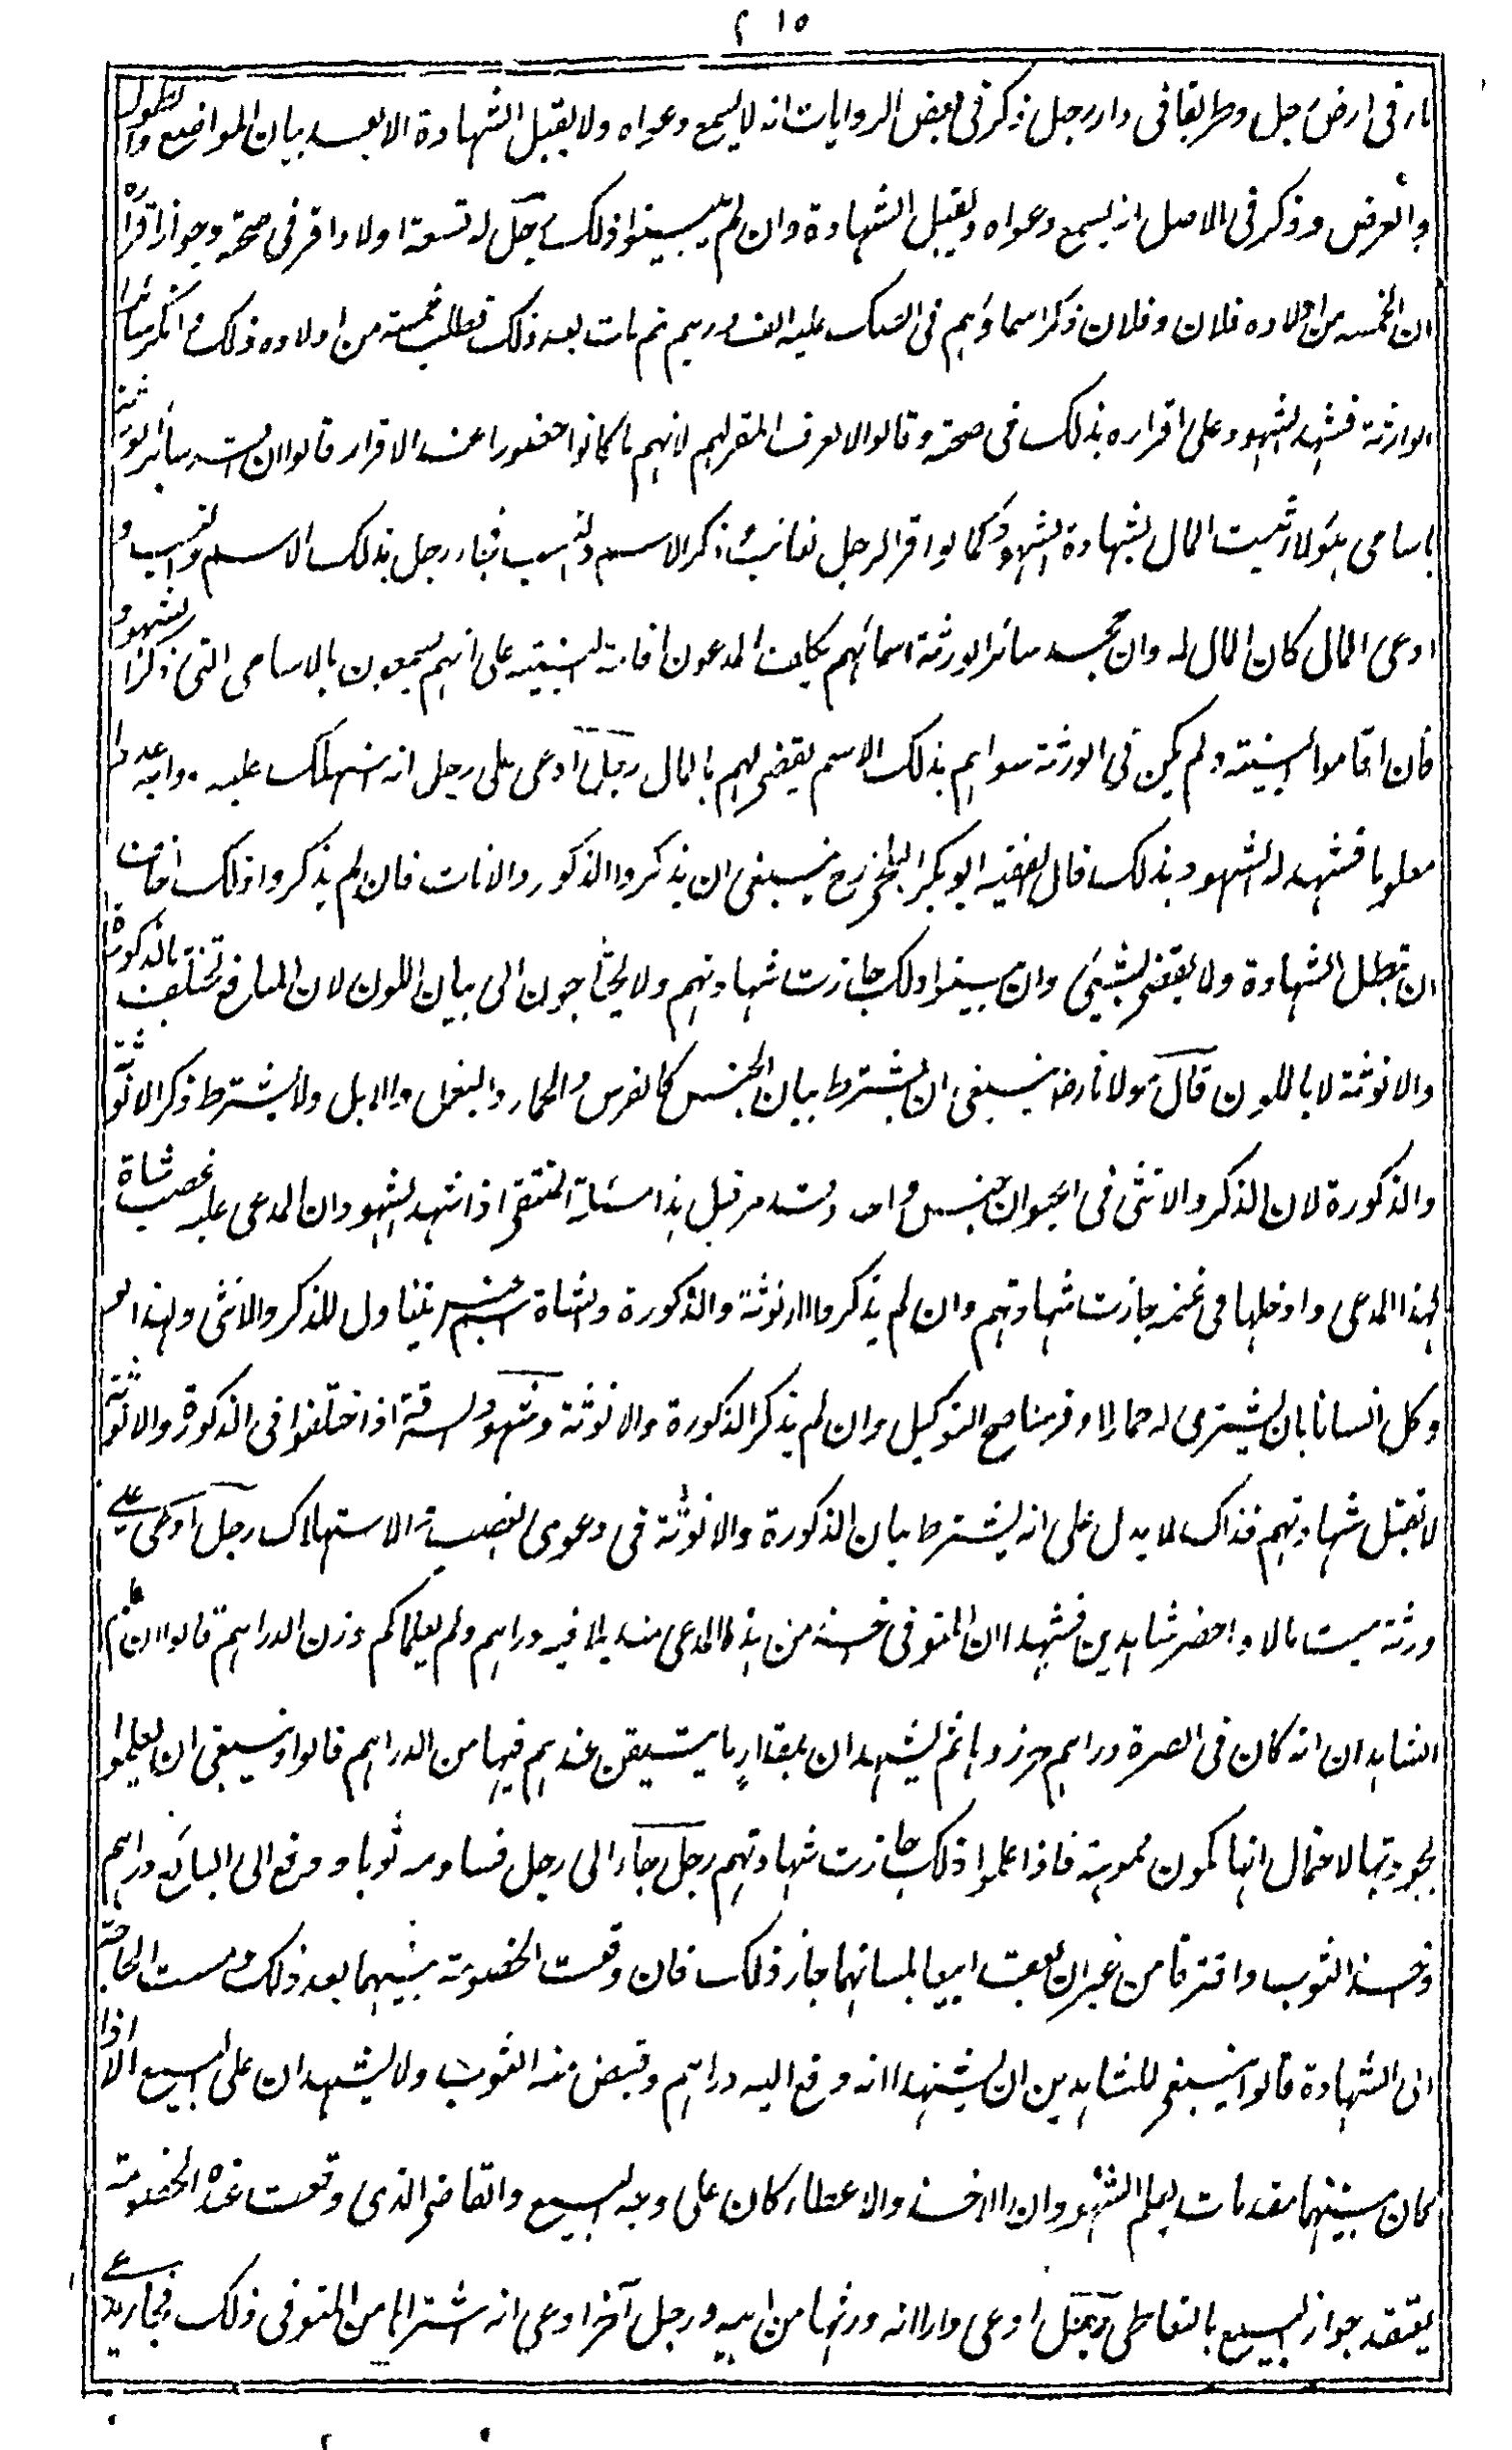 ٢١٥
نار فى ارض رجل وطريقا فى دار رجل ذكر فى بعض الروايات انه لا يسمع دعواه ولا يقبل الشهادة الا بعد بيان المواضع والطول
والعرض وذكر فى الاصل انه يسمع دعواه وتقبل الشهادة وان لم يبينوا ذلك رجل له تسعة اولاد اقر فى صحته وجواز اقراره
ان لخمسة من اولاده فلان وفلان ذكر اسماؤهم فى الصك عليه الف درهم ثم مات بعد ذلك فطلب خمسة من اولاده ذلك وانكر سائر
الورثة فشهد الشهود على اقراره بذلك فى صحته وقالوا لا نعرف المقر لهم لانهم ما كانوا حضورا عند الاقرار قالوا ان اقر سائر الورثة
باسامى هؤلاء ثبت المال بشهادة الشهود كما لو اقر لرجل غائب ذكر الاسم والنسب فجاء رجل بذلك الاسم والنسب و
ادعى المال كان المال له وان جحد سائر الورثة اسمائهم يكلف المدعون اقامة البينة على انهم يسمون بالاسامى التى ذكر الشهود
فان اقاموا البينة ولم يكن فى الورثة سواهم بذلك الاسم يقضى لهم بالمال رجل ادعى على رجل انه استهلك عليه دوابه عددا
معلوما فشهد له الشهود بذلك قال الفقيه ابو بكر البلخى رح ينبغى ان يذكروا الذكور والاناث فان لم يذكروا ذلك اخاف
ان تبطل الشهادة ولا يقضى بشيئ وان بينوا ذلك جازت شهادتهم ولا يحتاجون الى بيان اللون لان المنافع تختلف بالذكورة
والانوثة لا باللون قال مولانا رض ينبغى ان يشترط بيان الجنس كالفرس والحمار والبغل والابل ولا يشترط ذكر الانوثة
والذكورة لان الذكر والانثى فى الحيوان جنس واحد وقد مر قبل هذا مسئلة المنتقى اذا شهد الشهود ان المدعى عليه غصب شاة
لهذا المدعى وادخلها فى غنمه جازت شهادتهم وان لم يذكروا الانوثة والذكورة والشاة اسم جنس يتناول للذكر والانثى ولهذا لو
وكل انسانا بان يشترى له حمارا او فرسا صح التوكيل وان لم يذكر الذكورة والانوثة وشهود السرقة اذا اختلفوا فى الذكورة والانوثة
لا تقبل شهادتهم فذاك لا يدل على انه يشترط بيان الذكورة والانوثة فى دعوى الغصب والاستهلاك رجل ادعى على
ورثة ميت مالا واحضر شاهدين فشهدا ان المتوفى اخذ من هذا المدعى منديلا فيه دراهم ولم يعلما كم وزن الدراهم قالوا ان علم
الشاهدان انه كان فى الصرة دراهم حرزوها ثم يشهدان بمقدار ما يتيقن عندهم فيها من الدراهم قالوا وينبغى ان يعلموا
بجودتها لاحتمال انها تكون مموهة فاذا علموا ذلك جازت شهادتهم رجل جاء الى رجل فساومه ثوبا ودفع الى البائع دراهم
واخذ الثوب وافترقا من غير ان يوجبا البيع بلسانهما جاز ذلك فان وقعت الخصومة بينهما بعد ذلك ومست الحاجة
الى الشهادة قالوا ينبغى للشاهدين ان يشهدا انه دفع اليه دراهم وقبض منه الثوب ولا يشهدان على البيع الا اذا
كان بينهما مقدمات يعلم الشهود ان الاخذ والاعطاء كان على وجه البيع والقاضى الذى وقعت عنده الخصومة
يعتقد جواز البيع بالتعاطى رجل ادعى دارا انه ورثها من ابيه ورجل آخر ادعى انه اشتراها من المتوفى ذلك